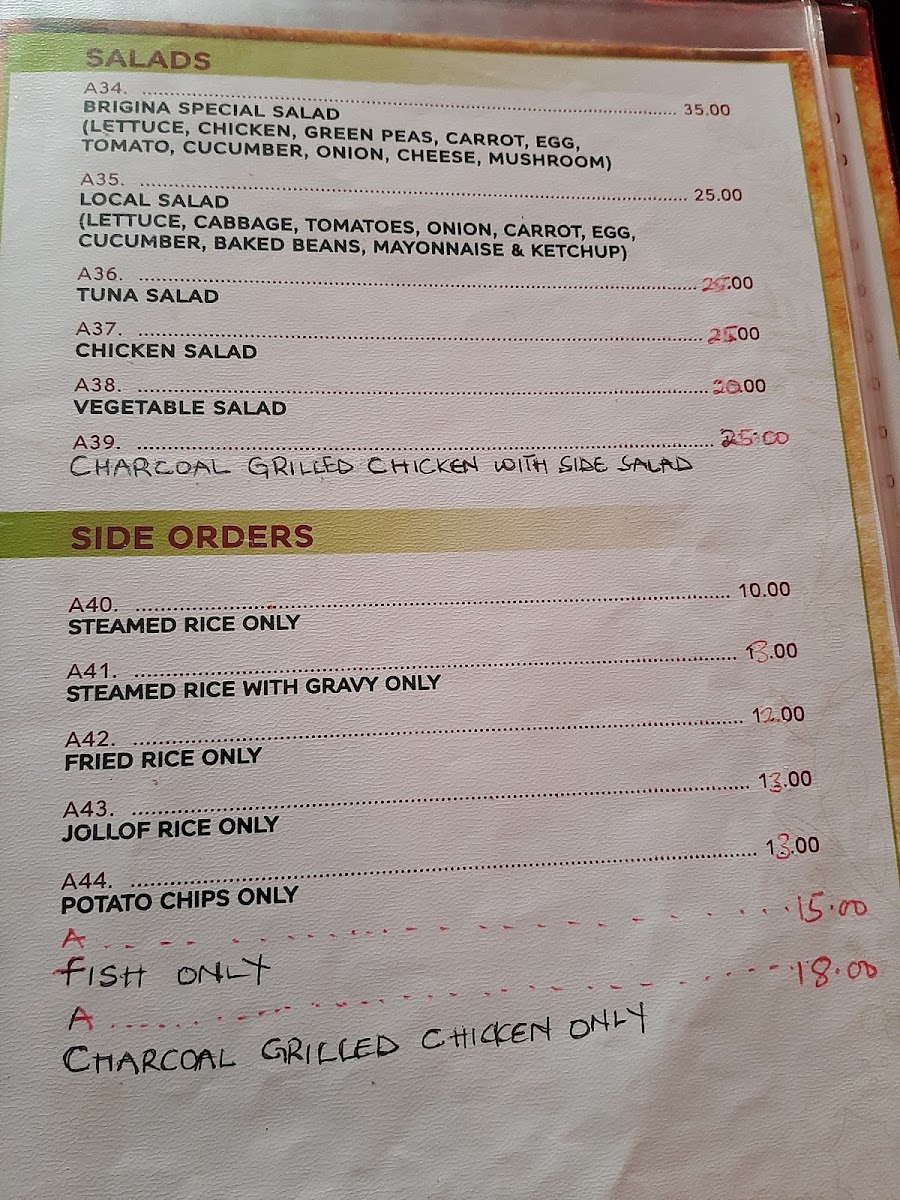 SALADS
A34. ........ 35.00
BRIGINA SPECIAL SALAD
(LETTUCE, CHICKEN, GREEN PEAS, CARROT, EGG,
TOMATO, CUCUMBER, ONION, CHEESE, MUSHROOM)
A35. ........ 25.00
LOCAL SALAD
(LETTUCE, CABBAGE, TOMATOES, ONION, CARROT, EGG,
CUCUMBER, BAKED BEANS, MAYONNAISE & KETCHUP)
A36. ........ 25.00
TUNA SALAD
A37. ........ 25.00
CHICKEN SALAD
A38. ........ 20.00
VEGETABLE SALAD
A39. ........ 25.00
CHARCOAL GRILLED CHICKEN WITH SIDE SALAD
SIDE ORDERS
A40. ........ 10.00
STEAMED RICE ONLY
A41. ........ 13.00
STEAMED RICE WITH GRAVY ONLY
A42. ........ 12.00
FRIED RICE ONLY
A43. ........ 13.00
JOLLOF RICE ONLY
A44. ........ 13.00
POTATO CHIPS ONLY
A ........ 15.00
FISH ONLY
A ........ 18.00
CHARCOAL GRILLED CHICKEN ONLY